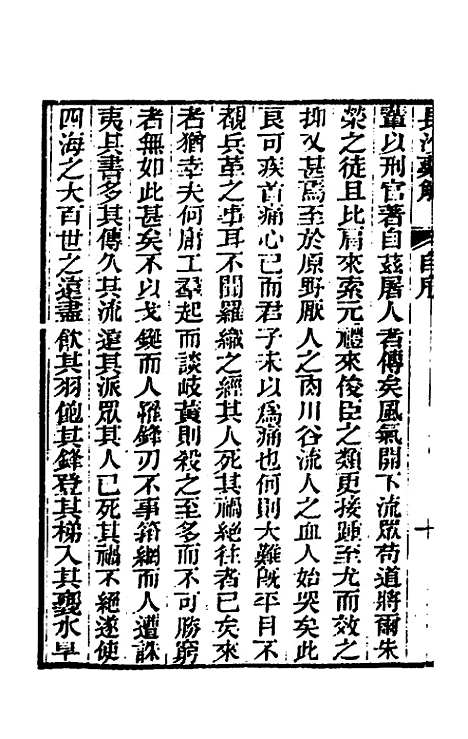 長沙藥解 自序 十
輩以刑官著自茲屠人者傳矣風氣開下流眾苟道將爾朱
榮之徒且比肩來索元禮來俊臣之類更接踵至尤而效之
抑又甚焉至於原野厭人之肉川谷流人之血人始哭矣此
良可疾首痛心已而君子未以為痛也何則大難既平目不
覩兵革之事耳不聞羅織之經其人死其禍絕往者已矣來
者猶幸夫何庸工羣起而談岐黃則殺之至多而不可勝窮
者無如此甚矣不以戈鋋而人罹鋒刃不事箝網而人遭誅
夷其書多其傳久其流遠其派眾其人已死其禍不絕遂使
四海之大百世之遠盡飲其羽飽其鋒登其梯入其甕水旱